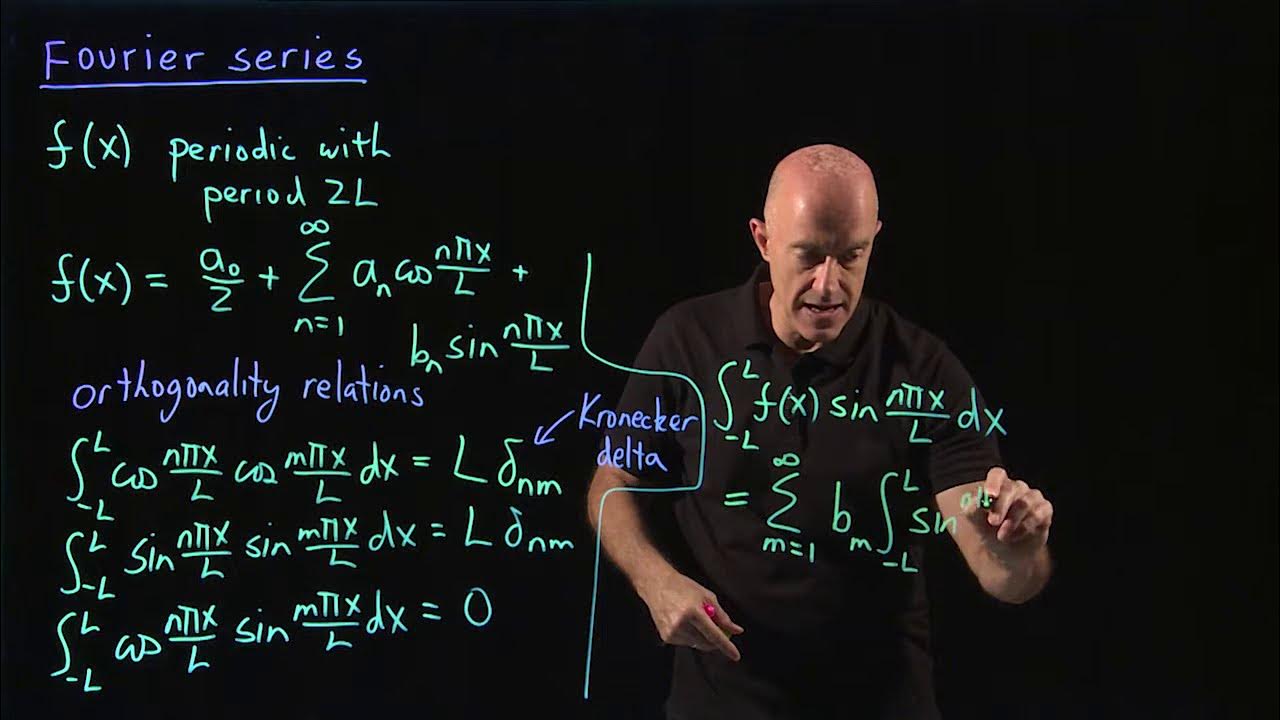 Fourier series
f(x) periodic with
period 2L
f(x) = a₀/2 + ∑_{n=1}^{∞} aₙ cos nπx/L +
bₙ sin nπx/L
orthogonality relations
∫_{-L}^{L} cos nπx/L cos mπx/L dx = L δₙₘ
Kronecker
delta
∫_{-L}^{L} sin nπx/L sin mπx/L dx = L δₙₘ
∫_{-L}^{L} cos nπx/L sin mπx/L dx = 0
∫_{-L}^{L} f(x) sin nπx/L dx
= ∑_{m=1}^{∞} bₘ ∫_{-L}^{L} sin